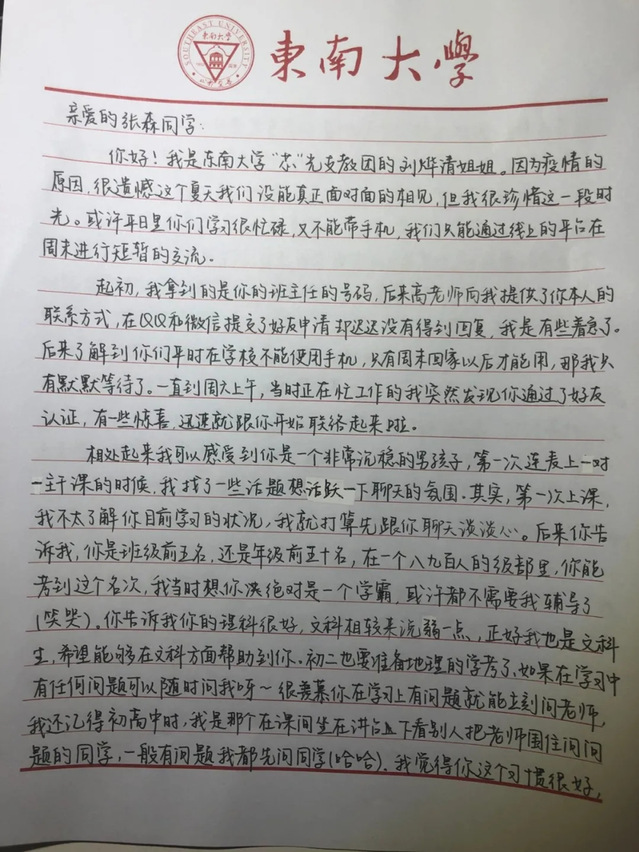 SOUTHEAST UNIVERSITY
東南大學
東南大學
亲爱的张森同学:
你好!我是东南大学"杰"光支教团的刘烨清姐姐。因为疫情的
原因,很遗憾这个夏天我们没能真正面对面的相见,但我很珍惜这一段时
光。或许平日里你们学习很忙碌,又不能带手机,我们只能通过线上的平台在
周末进行短暂的交流。
起初,我拿到的是你的班主任的号码,后来高老师向我提供了你本人的
联系方式,在QQ和微信提交了好友申请却迟迟没有得到回复,我是有些着急了。
后来了解到你们平时在学校不能使用手机,只有周末回家以后才能用,那我只
有默默等待了。一直到周六上午,当时正在忙工作的我突然发现你通过了好友
认证,有一些惊喜,迅速就跟你开始联络起来啦。
相处起来我可以感受到你是一个非常沉稳的男孩子,第一次连麦上一对
一主干课的时候,我找了一些话题想活跃一下聊天的氛围。其实,第一次上课,
我不太了解你目前学习的状况,我就打算先跟你聊天谈谈心。后来你告
诉我,你是班级前五名,还是年级前五十名,在一个八九百人的级部里,你能
考到这个名次,我当时想你决绝对是一个学霸,或许都不需要我辅导了
(笑哭)。你告诉我你的理科很好,文科相较来说弱一点,正好我也是文科
生,希望能够在文科方面帮助到你。初二也要准备地理的学考了,如果在学习中
有任何问题可以随时问我呀~很羡慕你在学习上有问题就能立刻问老师,
我还记得初高中时,我是那个在课间坐在讲台下看别人把老师围住问问
题的同学,一般有问题我都先问同学(哈哈)。我觉得你这个习惯很好,